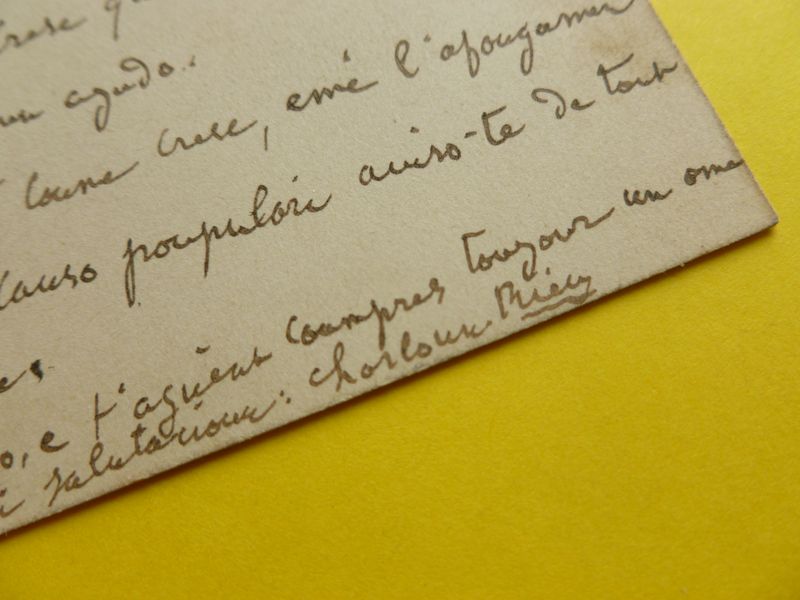 agudo.
coume crese, emé l'afougamen
lauso poupulàri aviso-te de tout
es,
o, e t'aguènt coumpres toujour un ome
i salutacioun: Charloun Riéu